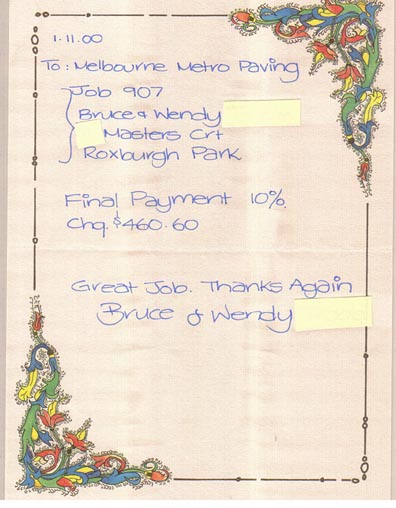 1.11.00
To: Melbourne Metro Paving
Job 907
Bruce & Wendy
Masters Crt
Roxburgh Park
Final Payment 10%
Chq. $460.60
Great Job. Thanks Again
Bruce & Wendy